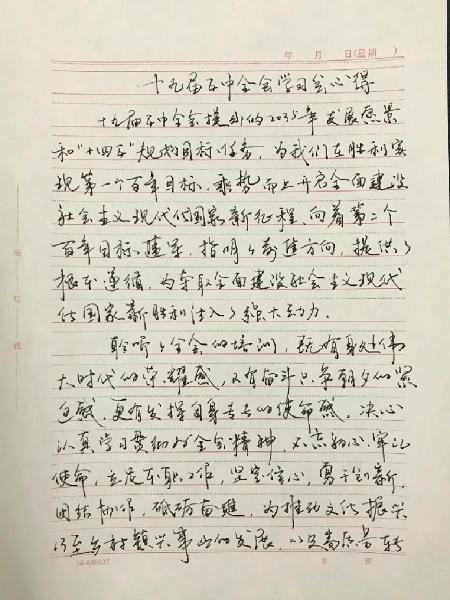 年 月 日(星期 )
十九届五中全会学习会心得
十九届五中全会提到的2035年发展愿景
和“十四五”规划目标任务，为我们在胜利实
现第一个百年目标，乘势而上开启全面建设
社会主义现代化国家新征程，向着第二个
百年目标进军，指明了前进方向，提供了
根本遵循，为夺取全面建设社会主义现代
化国家新胜利注入了强大动力。
聆听了全会的培训，既有身处伟
大时代的荣耀感，又有奋斗只争朝夕的紧
迫感，更有发挥自身专长的使命感。决心
认真学习贯彻好全会精神，不忘初心，牢记
使命，立足本职工作，坚定信心，勇于创新，
团结协作，砥砺奋进，为推动文化振兴
乃至乡村振兴事业的发展，以及高质量转
装 订 线
16-690437
第 页